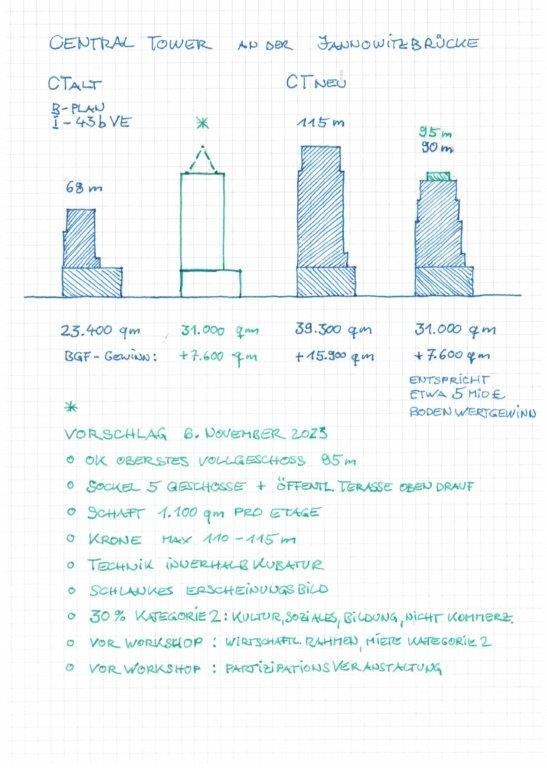 CENTRAL TOWER AN DER JANNOWITZBRÜCKE
CT ALT
B-PLAN
I-43b VE
68 m
*
CT NEU
115 m
95 m
90 m
23.400 qm 31.000 qm 39.300 qm 31.000 qm
BGF-GEWINN: +7.600 qm +15.900 qm +7.600 qm
ENTSPRICHT
ETWA 5 MIO €
BODENWERTGEWINN
*
VORSCHLAG 6. NOVEMBER 2023
o OK OBERSTES VOLLGESCHOSS 95 m
o SOCKEL 5 GESCHOSSE + ÖFFENTL. TERASSE OBEN DRAUF
o SCHAFT 1.100 qm PRO ETAGE
o KRONE MAX 110-115 m
o TECHNIK INNERHALB KUBATUR
o SCHLANKES ERSCHEINUNGSBILD
o 30% KATEGORIE 2: KULTUR, SOZIALES, BILDUNG, NICHT KOMMERZ.
o VOR WORKSHOP: WIRTSCHAFTL. RAHMEN, MIETE KATEGORIE 2
o VOR WORKSHOP: PARTIZIPATIONSVERANSTALTUNG